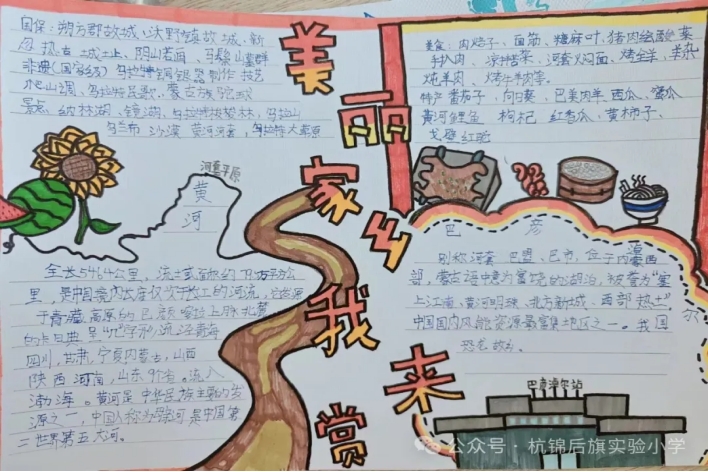 美丽家乡我来赏
国保：朔方郡故城、沃野镇故城、新
忽热古城土、阴山岩画、
非遗(国家级)乌拉特铜银器制作技艺
爬山调、乌拉特民歌、蒙古族
景点 纳林湖、镜湖、乌拉山
乌兰布沙漠 黄河河套、乌拉特大草原
河套平原
黄
河
全长5464公里，流域面积约
里，是中国境内长度仅次于长江的河流，
于青藏高原的巴颜喀拉山脉北麓
的卡日曲 呈"几"字形，流经青海
四川，甘肃，宁夏内蒙古，山西
陕西河南，山东9个省。流入
渤海。黄河是中华民族主要的发
源之一，中国人称为母亲河是中国第
二世界第五大河。
美食：肉焙子、面筋、糖麻叶、猪肉烩酸菜
手扒肉、凉拌苦菜、河套焖面、烤全羊、羊杂
炖羊肉、烤牛羊肉等。
特产 番茄子、向日葵、巴美肉羊 西瓜、蜜瓜
黄河鲤鱼 枸杞 红香瓜、黄柿子、
戈壁红驼
巴 彦 淖 尔
别称河套 巴盟、巴市，位于内蒙西
部，蒙古语中意为富饶的湖泊，被誉为"塞
上江南、黄河明珠、北方新城、西部热土"
中国国内风能资源最富集地区之一。我国
恐龙故乡。
巴彦淖尔站
公众号 · 杭锦后旗实验小学